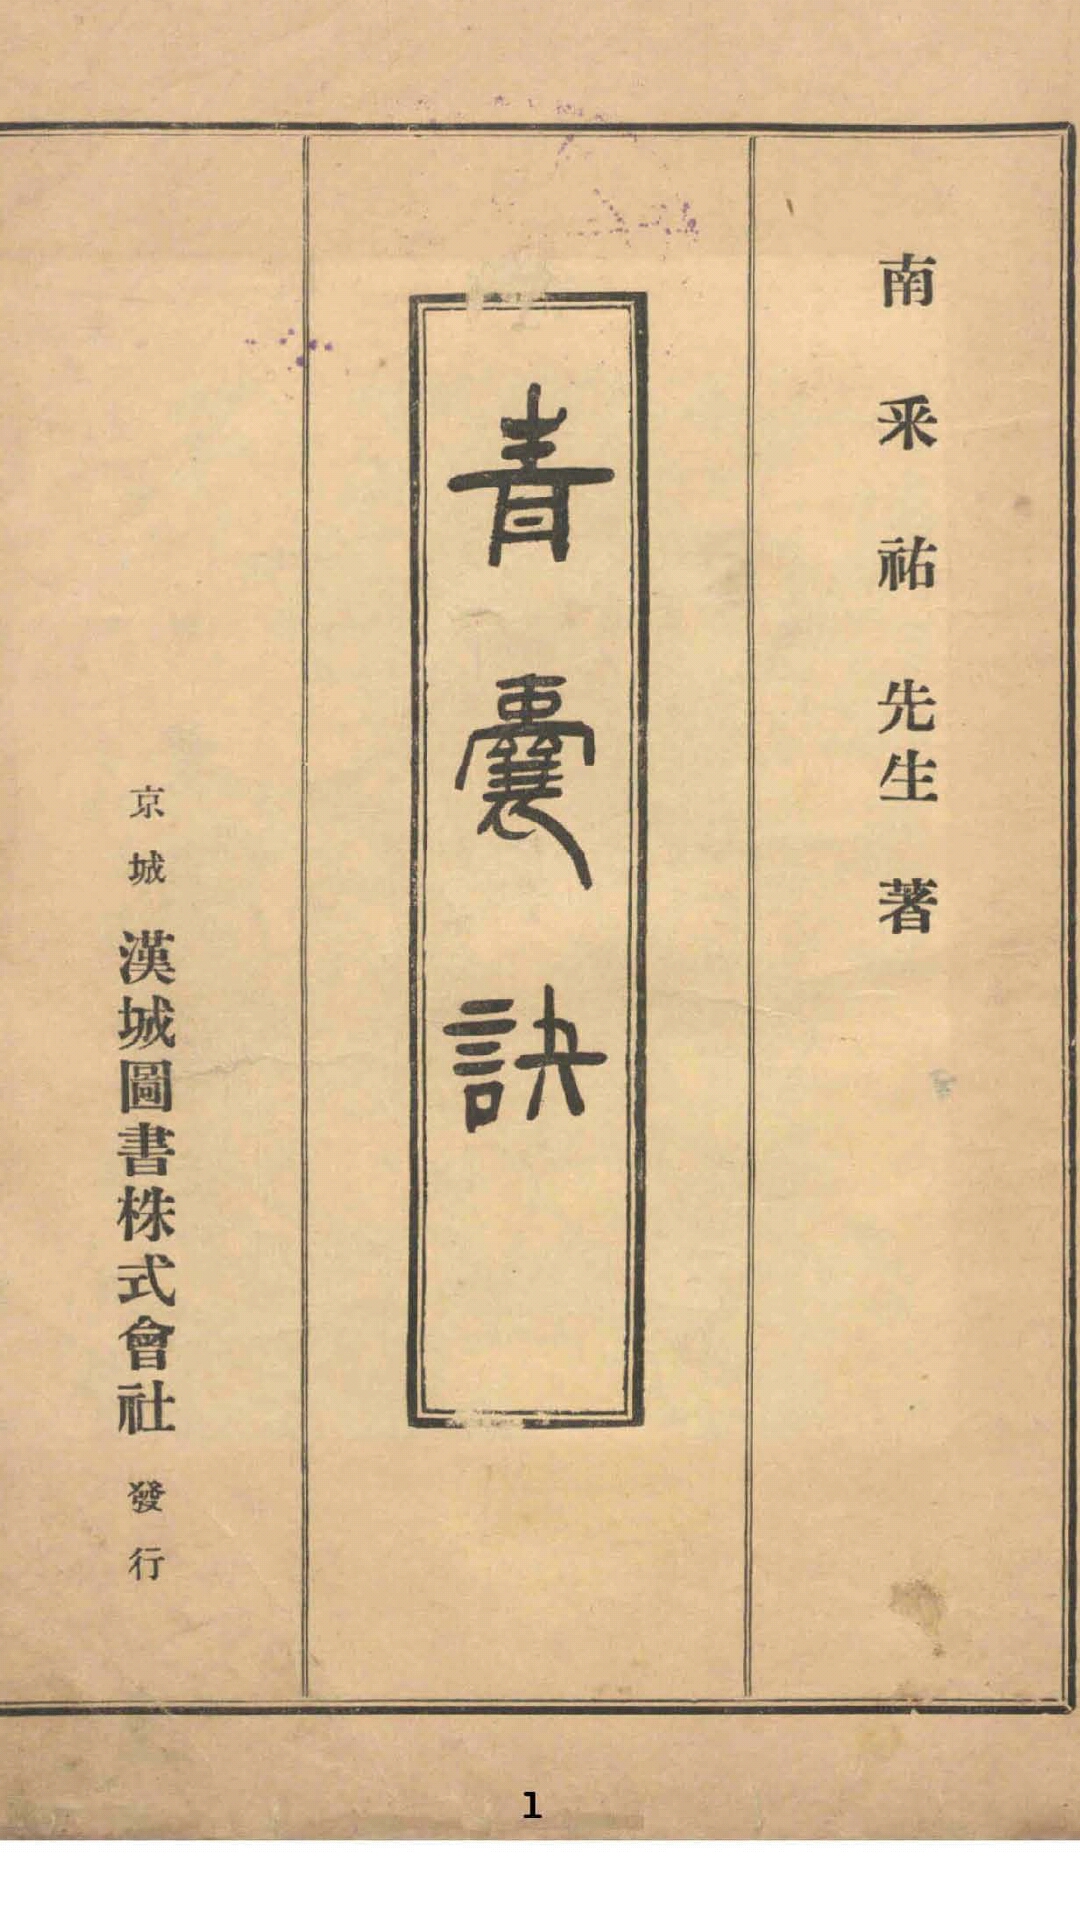 南釆祐先生著
青囊訣
京城 漢城圖書株式會社 發行
1